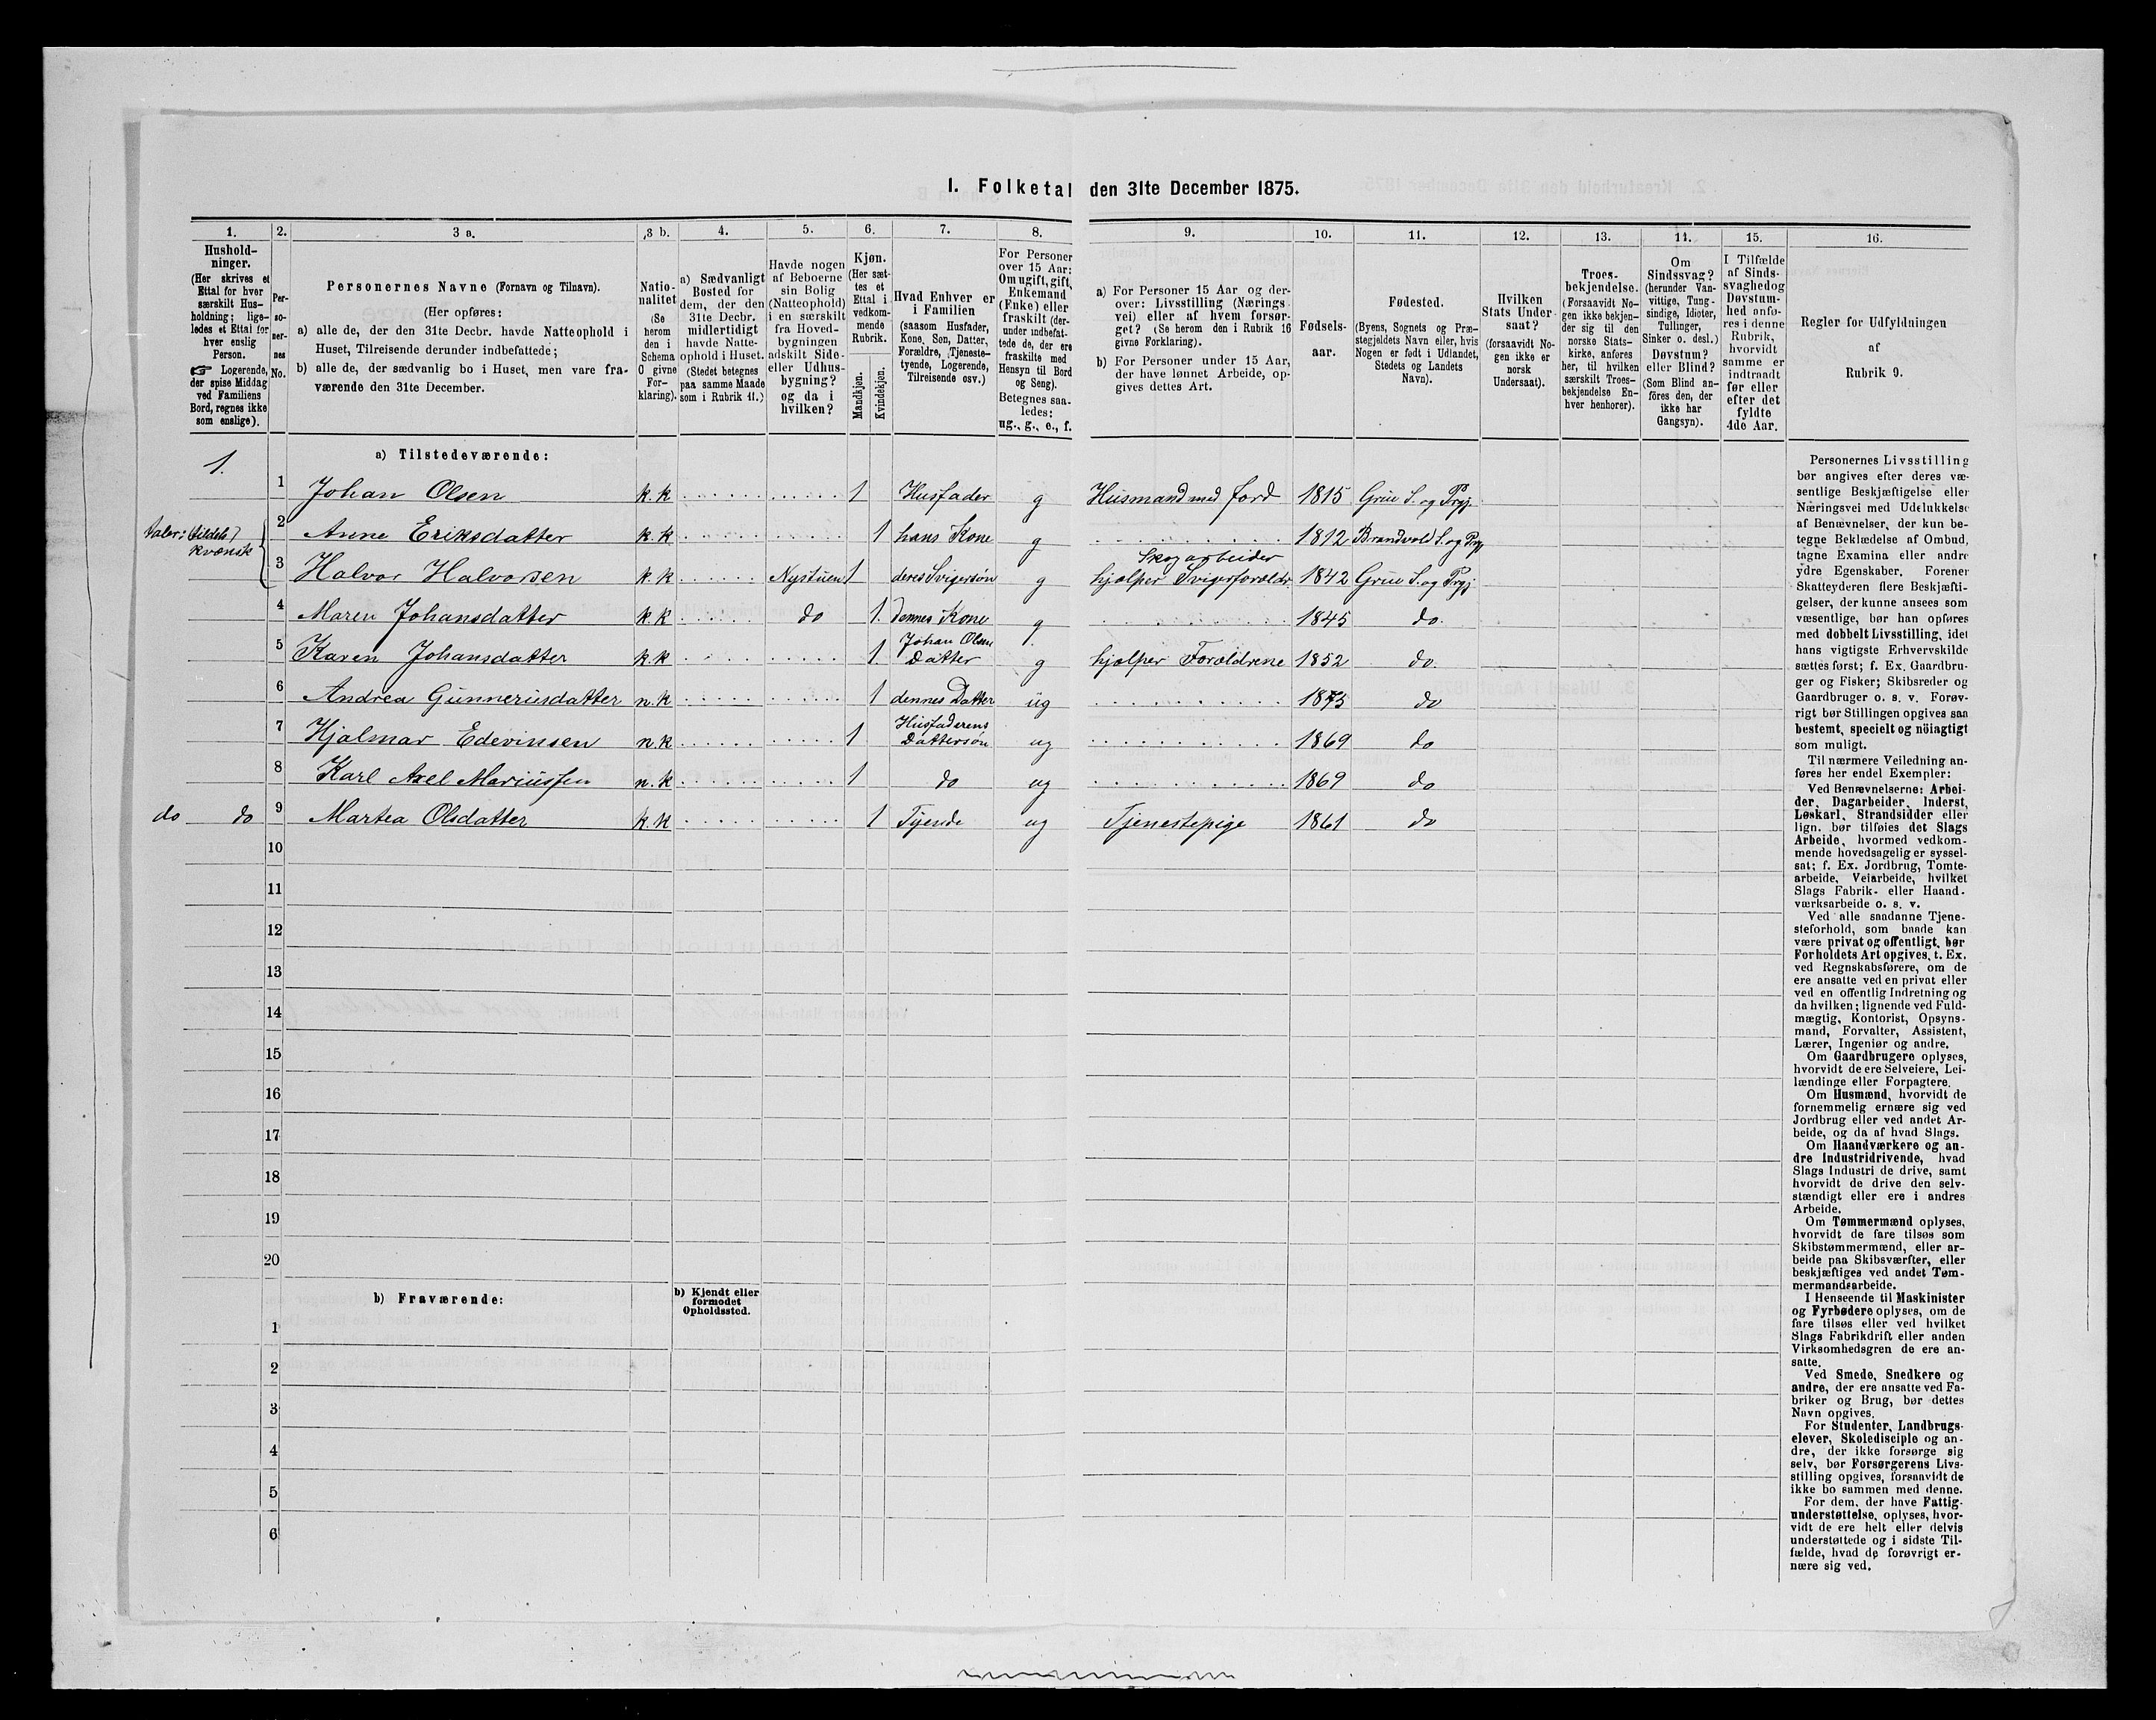 1. Folketal den 31te December 1875.
1.
Hushold-
ninger.
(Her skrives et
Ettal for hver
særskilt Hus-
holdning; lige-
ledes et Ettal for
hver enslig
Person.
☞ Logerende,
der spise Middag
ved Familiens
Bord, regnes ikke
som enslige).
2.
Per-
so-
ner-
nes
No.
3 a.
Personernes Navne (Fornavn og Tilnavn).
(Her opføres:
a) alle de, der den 31te Decbr. havde Natteophold i
Huset, Tilreisende derunder indbefattede;
b) alle de, der sædvanlig bo i Huset, men vare fra-
værende den 31te December.
3 b.
Natio-
nalitet
(Se
herom
den i
Schema
O givne
For-
klaring).
4.
a) Sædvanligt
Bosted for
dem, der den
31te Decbr.
midlertidigt
havde Natte-
ophold i Huset.
(Stedet betegnes
paa samme Maade
som i Rubrik 11.)
5.
Havde nogen
af Beboerne
sin Bolig
(Natteophold)
i en særskilt
fra Hoved-
bygningen
adskilt Side-
eller Udhus-
bygning?
og da i
hvilken?
6.
Kjøn.
(Her sæt-
tes et
Ettal i
vedkom-
mende
Rubrik.
Mandkjøn.
Kvindekjøn.
7.
Hvad Enhver er
i Familien
(saasom Husfader,
Kone, Søn, Datter,
Forældre, Tjeneste-
tyende, Logerende,
Tilreisende osv.)
8.
For Personer
over 15 Aar:
Om ugift, gift,
Enkemand
(Enke) eller
fraskilt (der-
under indbefat-
tede de, der ere
fraskilte med
Hensyn til Bord
og Seng).
Betegnes saa-
ledes:
ug., g., e., f.
9.
a) For Personer 15 Aar og der-
over: Livsstilling (Nærings-
vei) eller af hvem forsør-
get? (Se herom den i Rubrik 16
givne Forklaring).
b) For Personer under 15 Aar,
der have lønnet Arbeide, op-
gives dettes Art.
10.
Fødsels-
aar.
11.
Fødested.
(Byens, Sognets og Præ-
stegjeldets Navn eller, hvis
Nogen er født i Udlandet,
Stedets og Landets
Navn).
12.
Hvilken
Stats Under-
saat?
(forsaavidt No-
gen ikke er
norsk
Undersaat).
13.
Troes-
bekjendelse.
(Forsaavidt No-
gen ikke bekjen-
der sig til den
norske Stats-
kirke, anføres
her, til hvilken
særskilt Troes-
bekjendelse En-
hver henhører).
14.
Om
Sindssvag?
(herunder Van-
vittige, Tung-
sindige, Idioter,
Tullinger,
Sinker o. desl.)
Døvstum?
eller Blind?
(Som Blind an-
føres den, der
ikke har
Gangsyn).
15.
I Tilfælde
af Sinds-
svaghed og
Døvstum-
hed anfø-
res i denne
Rubrik,
hvorvidt
samme er
indtraadt
før eller
efter det
fyldte
4de Aar.
16.
Regler for Udfyldningen
af
Rubrik 9.
a) Tilstedeværende:
1.
1 Johan Olsen k.k 1 Husfader g Husmand med Jord 1815 Grue S. og Prgj.
taler: (tildels)
kvænsk
2 Anne Eriksdatter k.k 1 hans Kone g 1812 Brandvold S. og Prgj
3 Halvor Halvorsen k.k Nystuen 1 deres Svigersøn g Skogarbeider
hjælper Svigerforældr. 1842 Grue S. og Prgj
4 Maren Johansdatter k.k do 1. dennes Kone g 1845 do.
5 Karen Johansdatter k.k 1. Johan Olsen
Datter g hjælper Forældrene 1852 do.
6 Andrea Gunnerusdatter n.k 1 dennes Datter ug 1875 do
7 Hjalmar Edevinsen n.k 1 Husfaderens
Dattersøn ug 1869 do
8 Karl Axel Mariussen n.k 1 do ug 1869 do
do do 9 Martea Olsdatter k.k 1 Tyende ug Tjenestepige 1861 do
10
11
12
13
14
15
16
17
18
19
20
b) Fraværende:
b) Kjendt eller
formodet
Opholdssted.
1
2
3
4
5
6
Personernes Livsstilling
bør angives efter deres væ-
sentlige Beskjæftigelse eller
Næringsvei med Udelukkelse
af Benævnelser, der kun be-
tegne Beklædelse af Ombud,
tagne Examina eller andre
ydre Egenskaber. Forener
Skatteyderen flere Beskjæfti-
gelser, der kunne ansees som
væsentlige, bør han opføres
med dobbelt Livsstilling, idet
hans vigtigste Erhvervskilde
sættes først; f. Ex. Gaardbru-
ger og Fisker; Skibsreder og
Gaardbruger o. s. v. Forøv-
rigt bør Stillingen opgives saa
bestemt, specielt og nöiagtigt
som muligt.
Til nærmere Veiledning an-
føres her endel Exempler:
Ved Benævnelserne: Arbei-
der, Dagarbeider, Inderst,
Løskarl, Strandsidder eller
lign. bør tilføies det Slags
Arbeide, hvormed vedkom-
mende hovedsagelig er syssel-
sat; f. Ex. Jordbrug, Tomte-
arbeide, Veiarbeide, hvilket
Slags Fabrik- eller Haand-
værksarbeide o. s. v.
Ved alle saadanne Tjene-
steforhold, som baade kan
være privat og offentligt, bør
Forholdets Art opgives, t. Ex.
ved Regnskabsførere, om de
ere ansatte ved en privat eller
ved en offentlig Indretning og
da hvilken; lignende ved Fuld-
mægtig, Kontorist, Opsyns-
mand, Forvalter, Assistent,
Lærer, Ingeniør og andre.
Om Gaardbrugere oplyses,
hvorvidt de ere Selveiere, Lei-
lændinge eller Forpagtere.
Om Husmænd, hvorvidt de
fornemmelig ernære sig ved
Jordbrug eller ved andet Ar-
beide, og da af hvad Slags.
Om Haandværkere og an-
dre Industridrivende, hvad
Slags Industri de drive, samt
hvorvidt de drive den selv-
stændigt eller ere i andres
Arbeide.
Om Tømmermænd oplyses,
hvorvidt de fare tilsøs som
Skibstømmermænd, eller ar-
beide paa Skibsværfter, eller
beskjæftiges ved andet Tøm-
mermandsarbeide.
I Henseende til Maskinister
og Fyrbødere oplyses, om de
fare tilsøs eller ved hvilket
Slags Fabrikdrift eller anden
Virksomhedsgren de ere an-
satte.
Ved Smede, Snedkere og
andre, der ere ansatte ved Fa-
briker og Brug, bør dettes
Navn opgives.
For Studenter, Landbrugs-
elever, Skoledisciple og an-
dre, der ikke forsørge sig
selv, bør Forsørgerens Livs-
stilling opgives, forsaavidt de
ikke bo sammen med denne.
For dem, der have Fattig-
understøttelse, oplyses, hvor-
vidt de ere helt eller delvis
understøttede og i sidste Til-
fælde, hvad de forøvrigt er-
nære sig ved.